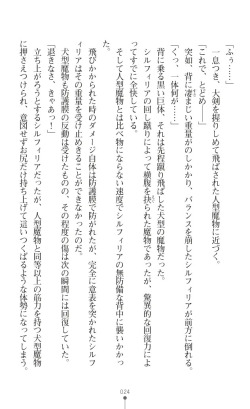 「ふぅ……」
一息つき、大剣を握りしめて飛ばされた人型魔物に近づく。
「これで、とどめ――」
突如、背に凄まじい重量がのしかかり、バランスを崩したシルフィリアが前方に倒れる。
「くっ、一体何が……」
背に乗る黒い巨体。それは先程蹴り飛ばした犬型の魔物だった。
シルフィリアの回し蹴りによって横腹を抉られた魔物であったが、驚異的な回復力によ
ってすでに全快している。
そして人型魔物とは比べ物にならない速度でシルフィリアの無防備な背中に襲いかかっ
た。
飛びかかられた時のダメージ自体は防護膜で防がれたが、完全に意表を突かれたシルフ
ィリアはその重量を受け止めきることができなかったのだ。
犬型魔物も防護膜の反動は受けたものの、その程度の傷は次の瞬間には回復していた。
「退きなさ、きゃあっ！」
立ち上がろうとするシルフィリアだったが、人型魔物と同等以上の筋力を持つ犬型魔物
に押さえつけられ、意図せずお尻だけ持ち上げて這いつくばるような体勢になってしまう。
024